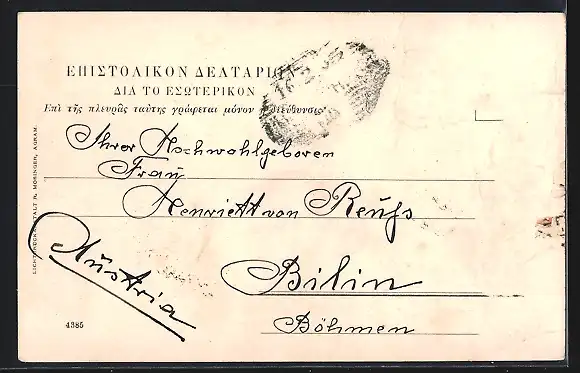 ΕΠΙΣΤΟΛΙΚΟΝ ΔΕΛΤΑΡΙΟΝ
ΔΙΑ ΤΟ ΕΣΩΤΕΡΙΚΟΝ
Ἐπὶ τῆς πλευρᾶς ταύτης γράφεται μόνον ἡ διεύθυνσις
Ihrer Hochwohlgeboren
Frau
Henriett von Reuss
Bilin
Böhmen
Austria
LICHTDRUCKANSTALT R. MOSINGER, AGRAM.
4385